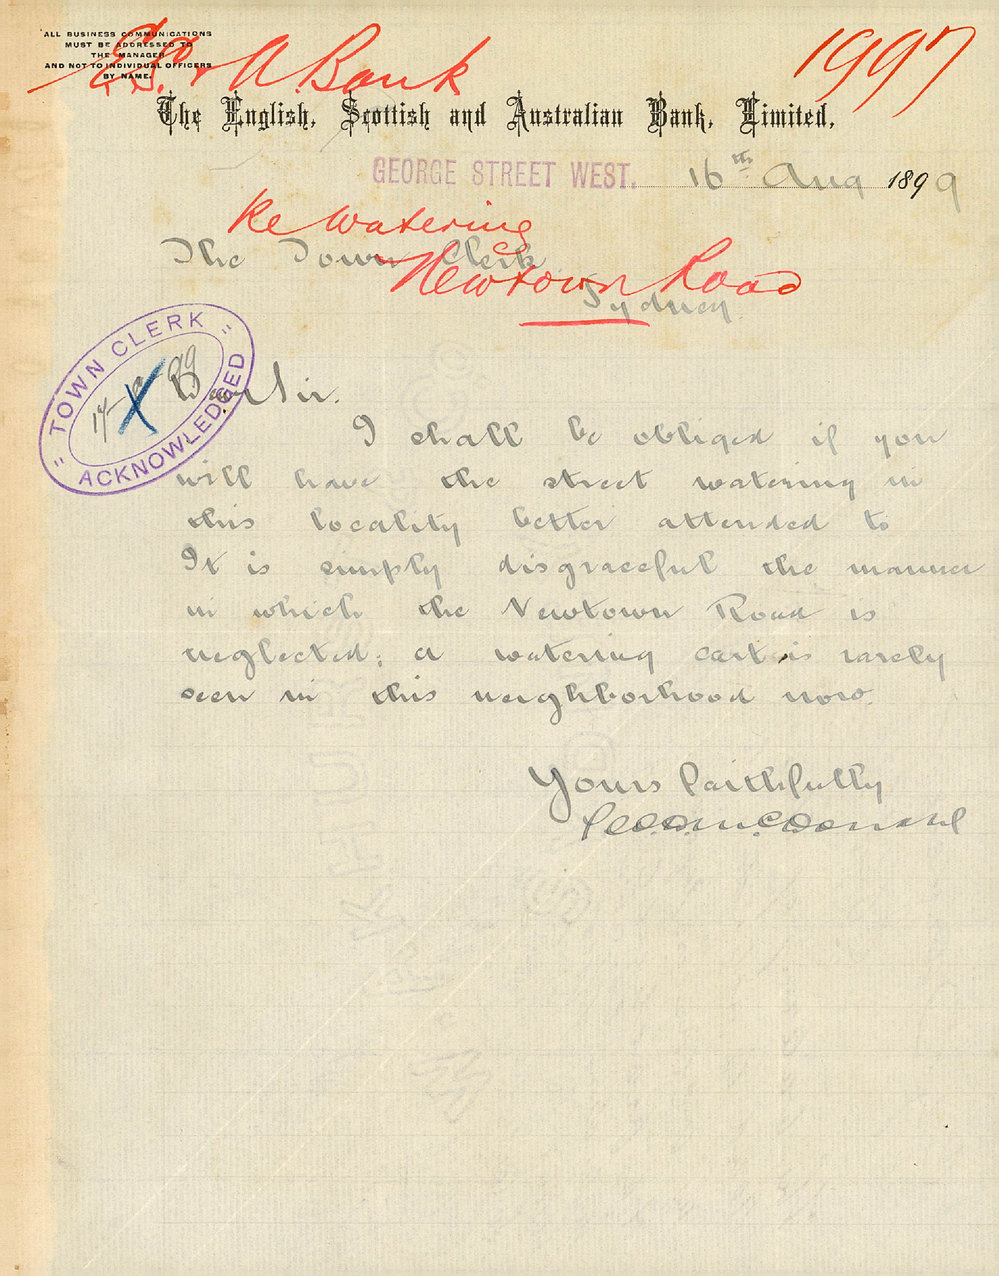 ALL BUSINESS COMMUNICATIONS
MUST BE ADDRESSED TO
THE MANAGER
AND NOT TO INDIVIDUAL OFFICERS
BY NAME.
E.S. & A. Bank
1997
The English, Scottish and Australian Bank, Limited,
GEORGE STREET WEST. 16th Aug 1899
Re Watering
Newtown Road
The Town Clerk
Sydney.
TOWN CLERK
" ACKNOWLEDGED "
Dear Sir.
I shall be obliged if you
will have the street watering in
this locality better attended to
It is simply disgraceful the manner
in which the Newtown Road is
neglected; a watering cart is rarely
seen in this neighborhood now.
Yours faithfully
McDonald